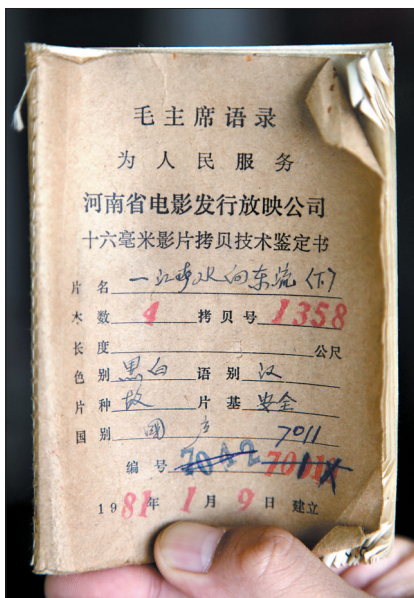 毛主席语录
为人民服务
河南省电影发行放映公司
十六毫米影片拷贝技术鉴定书
片名 一江春水向东流（下）
本数 4 拷贝号 1358
长度 公尺
色别 黑白 语别 汉
片种 故 片基 安全
国别 国产 7011
编号 7042
1981年1月9日 建立